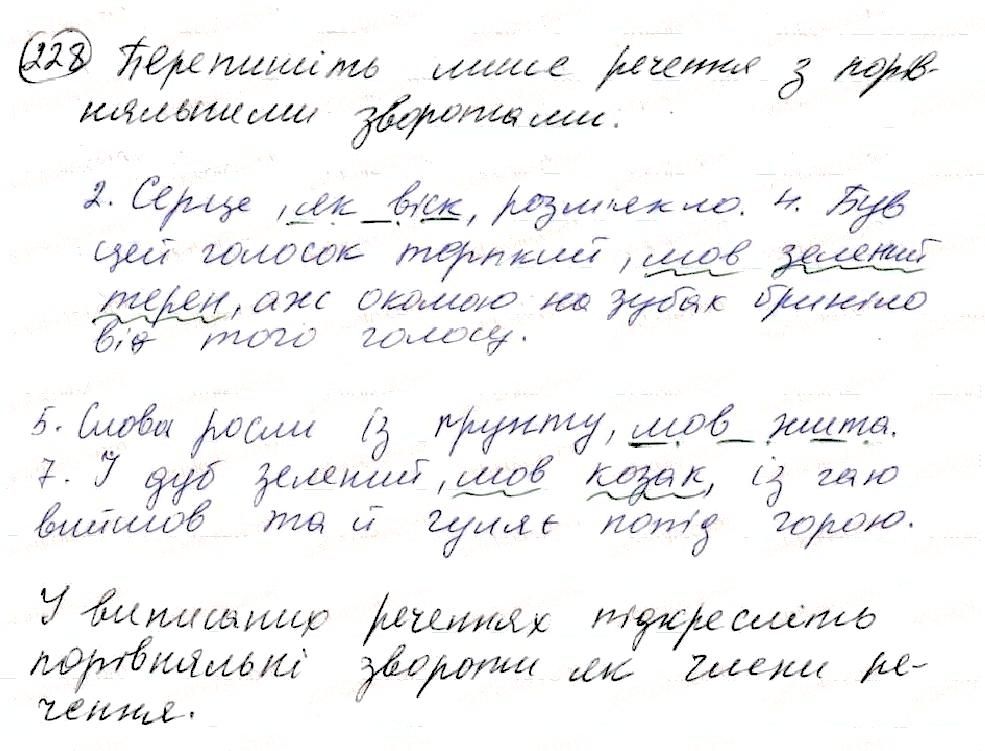 228 Перепишіть лише речення з порів-
няльними зворотами.
2. Серце, як віск, розм'якло. 4. Був
цей голосок терпкий, мов зелений
терен, аж оскома на зубах бриніла
від того голосу.
5. Слова росли із ґрунту, мов жита.
7. І дуб зелений, мов козак, із гаю
вийшов та й гуляє попід горою.
У виписаних реченнях підкресліть
порівняльні звороти як члени ре-
чення.